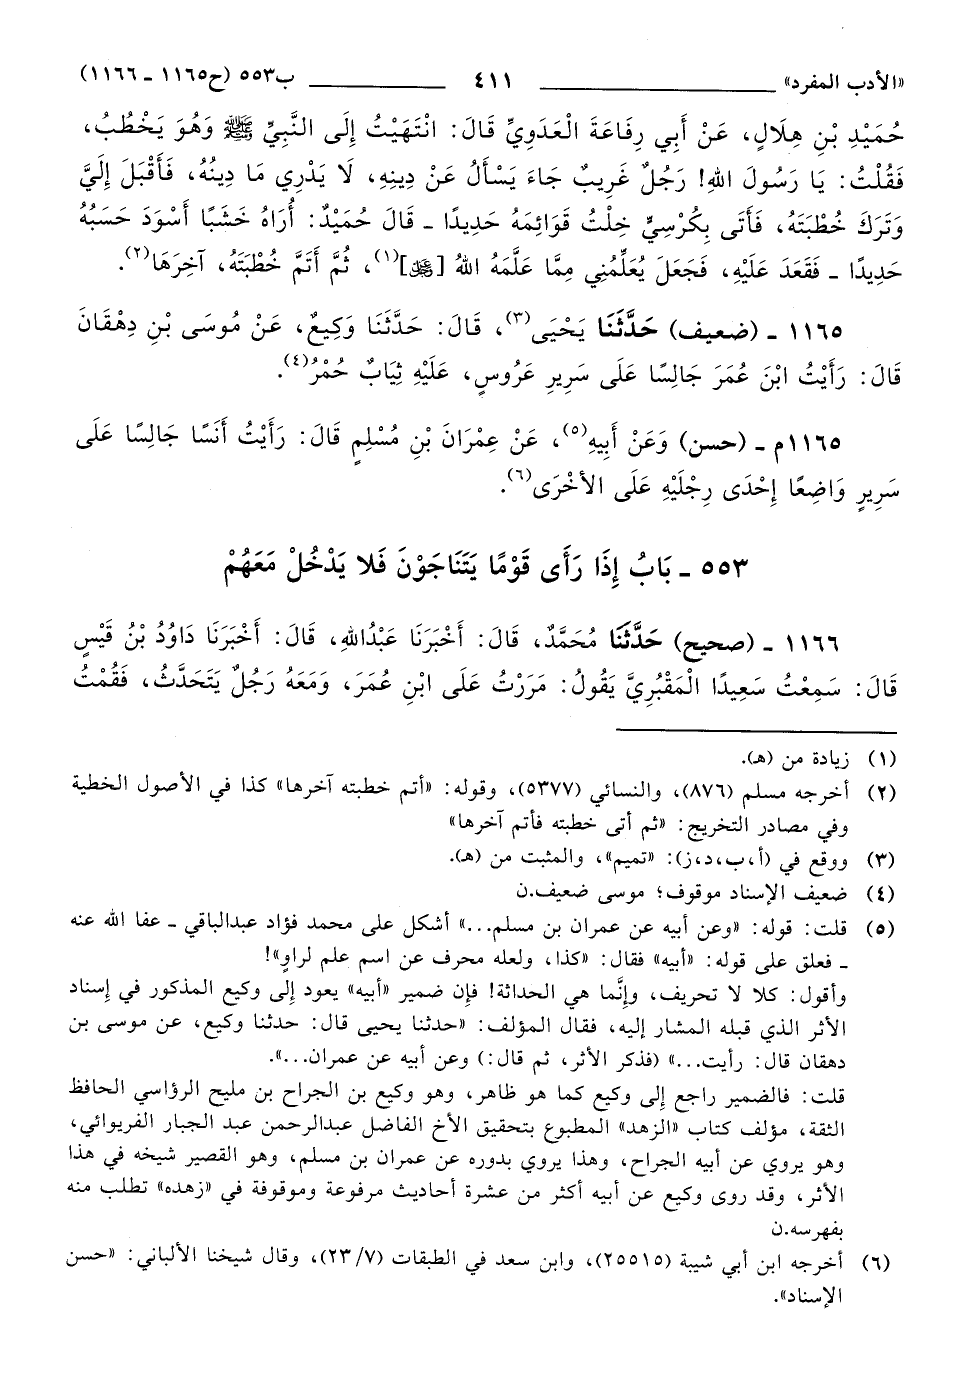 «الأدب المفرد» ٤١١ ب٥٥٣ (ح١١٦٥ ـ ١١٦٦)
حُمَيْدِ بْنِ هِلَالٍ، عَنْ أَبِي رِفَاعَةَ الْعَدَوِيِّ قَالَ: انْتَهَيْتُ إِلَى النَّبِيِّ ﷺ وَهُوَ يَخْطُبُ،
فَقُلْتُ: يَا رَسُولَ اللهِ! رَجُلٌ غَرِيبٌ جَاءَ يَسْأَلُ عَنْ دِينِهِ، لَا يَدْرِي مَا دِينُهُ، فَأَقْبَلَ إِلَيَّ
وَتَرَكَ خُطْبَتَهُ، فَأَتَى بِكُرْسِيٍّ خِلْتُ قَوَائِمَهُ حَدِيدًا ـ قَالَ حُمَيْدٌ: أُرَاهُ خَشَبًا أَسْوَدَ حَسَبُهُ
حَدِيدًا ـ فَقَعَدَ عَلَيْهِ، فَجَعَلَ يُعَلِّمُنِي مِمَّا عَلَّمَهُ اللهُ [ﷻ](١)، ثُمَّ أَتَمَّ خُطْبَتَهُ، آخِرَهَا(٢).
١١٦٥ ـ (ضعيف) حَدَّثَنَا يَحْيَى(٣)، قَالَ: حَدَّثَنَا وَكِيعٌ، عَنْ مُوسَى بْنِ دِهْقَانَ
قَالَ: رَأَيْتُ ابْنَ عُمَرَ جَالِسًا عَلَى سَرِيرِ عَرُوسٍ، عَلَيْهِ ثِيَابٌ حُمْرُ(٤).
١١٦٥م ـ (حسن) وَعَنْ أَبِيهِ(٥)، عَنْ عِمْرَانَ بْنِ مُسْلِمٍ قَالَ: رَأَيْتُ أَنَسًا جَالِسًا عَلَى
سَرِيرٍ وَاضِعًا إِحْدَى رِجْلَيْهِ عَلَى الأُخْرَى(٦).
٥٥٣ ـ بَابُ إِذَا رَأَى قَوْمًا يَتَنَاجَوْنَ فَلا يَدْخُلْ مَعَهُمْ
١١٦٦ ـ (صحيح) حَدَّثَنَا مُحَمَّدٌ، قَالَ: أَخْبَرَنَا عَبْدُاللهِ، قَالَ: أَخْبَرَنَا دَاوُدُ بْنُ قَيْسٍ
قَالَ: سَمِعْتُ سَعِيدًا الْمَقْبُرِيَّ يَقُولُ: مَرَرْتُ عَلَى ابْنِ عُمَرَ، وَمَعَهُ رَجُلٌ يَتَحَدَّثُ، فَقُمْتُ
(١) زيادة من (هـ).
(٢) أخرجه مسلم (٨٧٦)، والنسائي (٥٣٧٧)، وقوله: «أتم خطبته آخرها» كذا في الأصول الخطية
وفي مصادر التخريج: «ثم أتى خطبته فأتم آخرها»
(٣) ووقع في (أ،ب،د،ز): «تميم»، والمثبت من (هـ).
(٤) ضعيف الإسناد موقوف؛ موسى ضعيف.ن
(٥) قلت: قوله: «وعن أبيه عن عمران بن مسلم...» أشكل على محمد فؤاد عبدالباقي ـ عفا الله عنه
ـ فعلق على قوله: «أبيه» فقال: «كذا، ولعله محرف عن اسم علم لراوٍ»!
وأقول: كلا لا تحريف، وإنَّما هي الحداثة! فإن ضمير «أبيه» يعود إلى وكيع المذكور في إسناد
الأثر الذي قبله المشار إليه، فقال المؤلف: «حدثنا يحيى قال: حدثنا وكيع، عن موسى بن
دهقان قال: رأيت...» (فذكر الأثر، ثم قال:) وعن أبيه عن عمران...».
قلت: فالضمير راجع إلى وكيع كما هو ظاهر، وهو وكيع بن الجراح بن مليح الرؤاسي الحافظ
الثقة، مؤلف كتاب «الزهد» المطبوع بتحقيق الأخ الفاضل عبدالرحمن عبد الجبار الفريوائي،
وهو يروي عن أبيه الجراح، وهذا يروي بدوره عن عمران بن مسلم، وهو القصير شيخه في هذا
الأثر، وقد روى وكيع عن أبيه أكثر من عشرة أحاديث مرفوعة وموقوفة في «زهده» تطلب منه
بفهرسه.ن
(٦) أخرجه ابن أبي شيبة (٢٥٥١٥)، وابن سعد في الطبقات (٢٣/٧)، وقال شيخنا الألباني: «حسن
الإسناد».